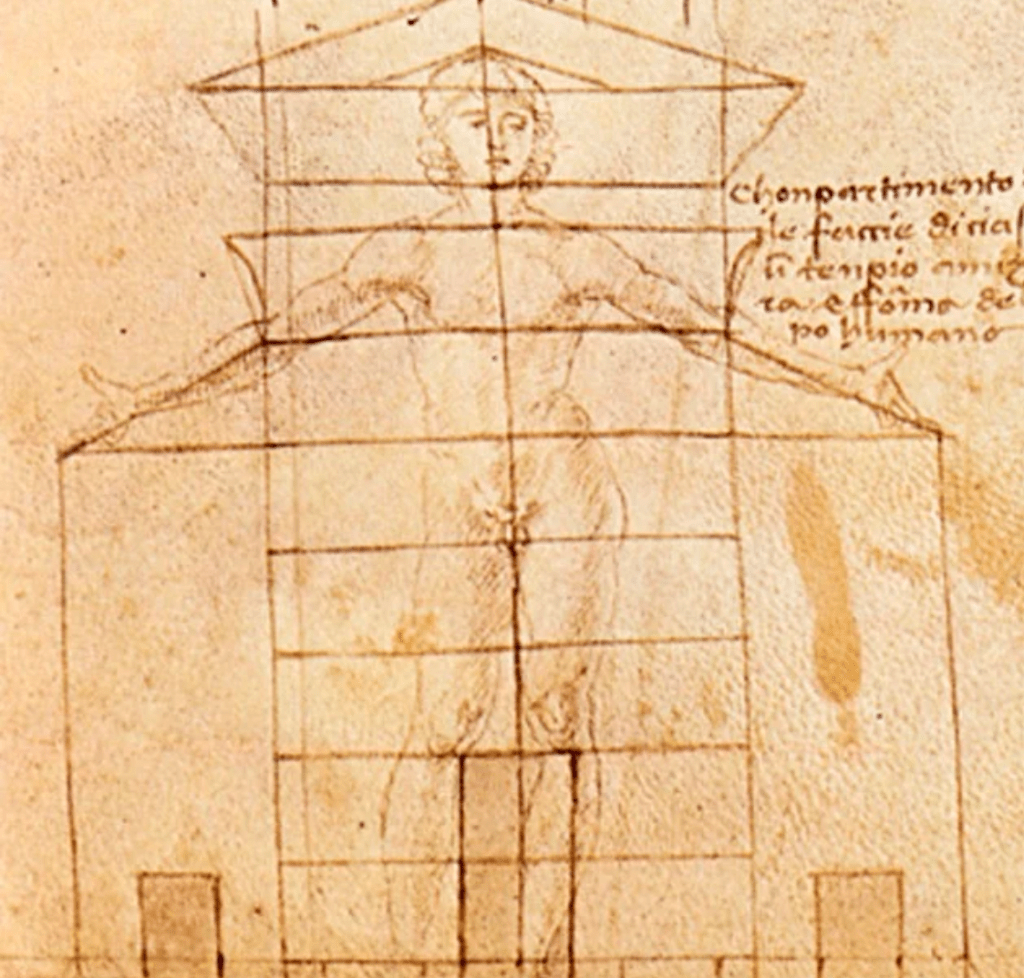 Chonpartimento
le faccie di cias
ū tenpio
ra e fforma de
po humano